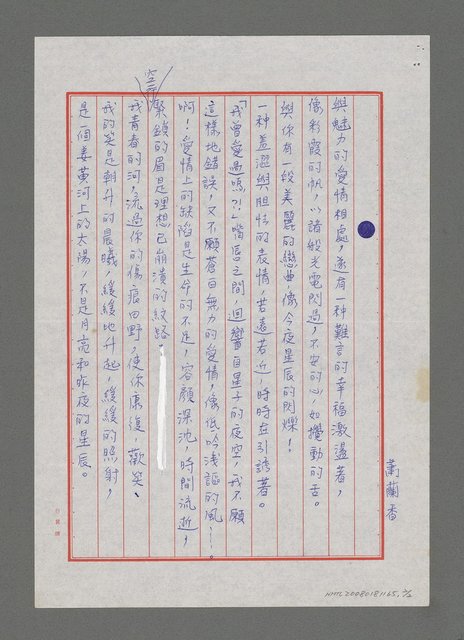 蕭蘭香
與魅力的愛情相處，遂有一种難言的幸福激盪著，
像彩霞的帆，以諸般光電閃過，不安的心，如攪動的舌。
與你有一段美麗的戀曲，像今夜星辰的閃爍！
一种羞澀與胆怯的表情，若遠若近，時時在引誘著。
「我曾愛過嗎?!」嘴唇之間，迴響自星子的夜空，我不願
這樣地錯誤，又不願蒼白無力的愛情，像低吟淺謳的風……。
啊！愛情上的缺陷是生命的不足，容顏深沈，時間流逝，
緊鎖的眉是理想已崩潰的紋路。
空一行
我青春的河，流過你的傷痕田野，使你康復，歡笑、
我的笑是朝升的晨曦，緩緩地升起，緩緩的照射，
是一個姜黃河上的太陽，不是月亮和昨夜的星辰。
HML20080181165, 2/2